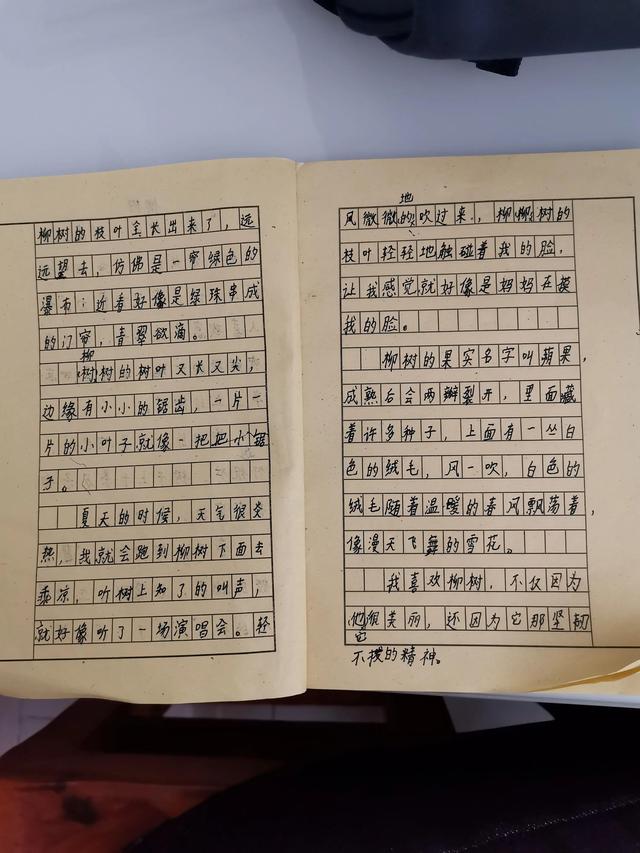 柳树的枝叶全长出来了，远
远望去，仿佛是一帘绿色的
瀑布；近看好像是绿珠串成
的门帘，青翠欲滴。
柳
树树的树叶又长又尖，
边缘有小小的锯齿，一片一
片的小叶子就像一把把小锯
子。
夏天的时候，天气很炎
热，我就会跑到柳树下面去
乘凉，听树上知了的叫声，
就好像听了一场演唱会。轻
地
风微微的吹过来，柳柳树的
枝叶轻轻地触碰着我的脸，
让我感觉就好像是妈妈在摸
我的脸。
柳树的果实名字叫蒴果，
成熟后会两瓣裂开，里面藏
着许多种子，上面有一丛白
色的绒毛，风一吹，白色的
绒毛随着温暖的春风飘荡着，
像漫天飞舞的雪花。
我喜欢柳树，不仅因为
他很美丽，还因为它那坚韧
它
不拔的精神。